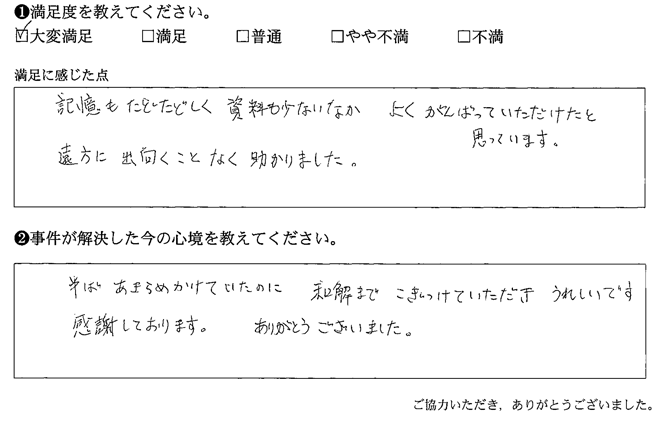 ❶満足度を教えてください。
☑大変満足 □満足 □普通 □やや不満 □不満
満足に感じた点
記憶もたどたどしく 資料も少ないなか よくがんばっていただけたと
思っています。
遠方に出向くことなく助かりました。
❷事件が解決した今の心境を教えてください。
半ばあきらめかけていたのに 和解までこぎつけていただき うれしいです
感謝しております。 ありがとうございました。
ご協力いただき，ありがとうございました。